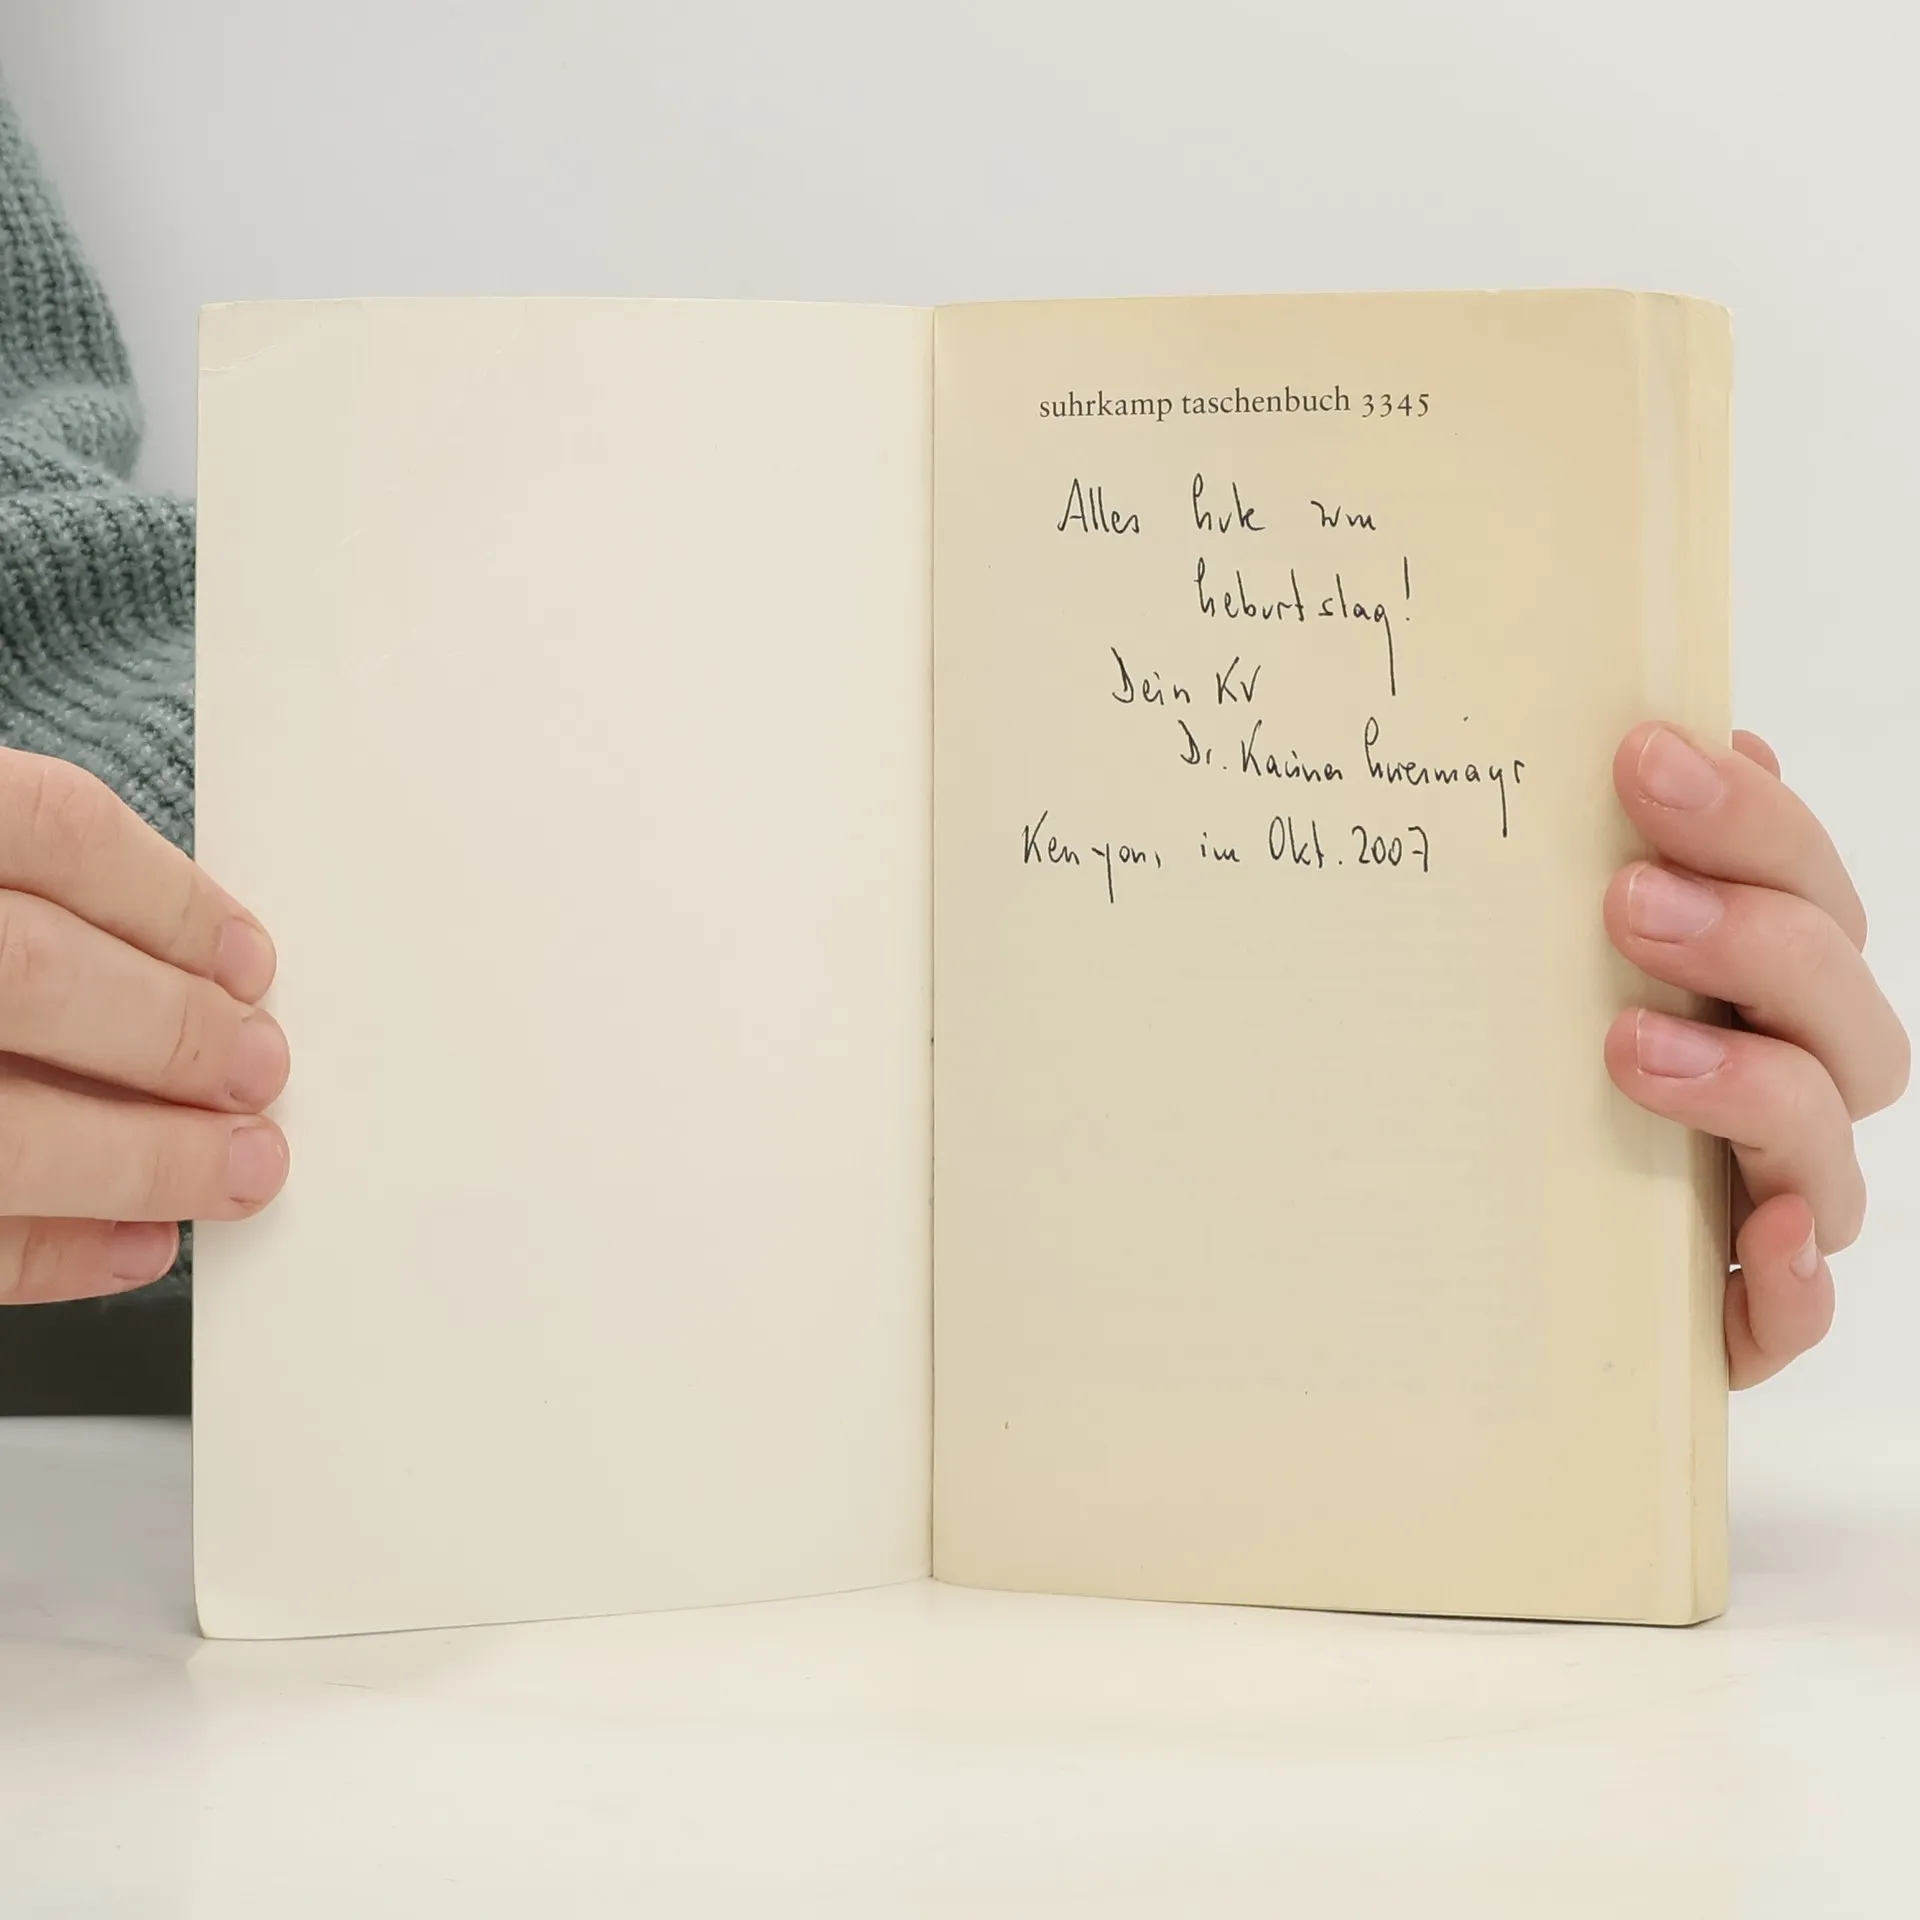 suhrkamp taschenbuch 3345
Alles Gute zum
Geburtstag!
Dein KV
Dr.
Kenyon, im Okt. 2007